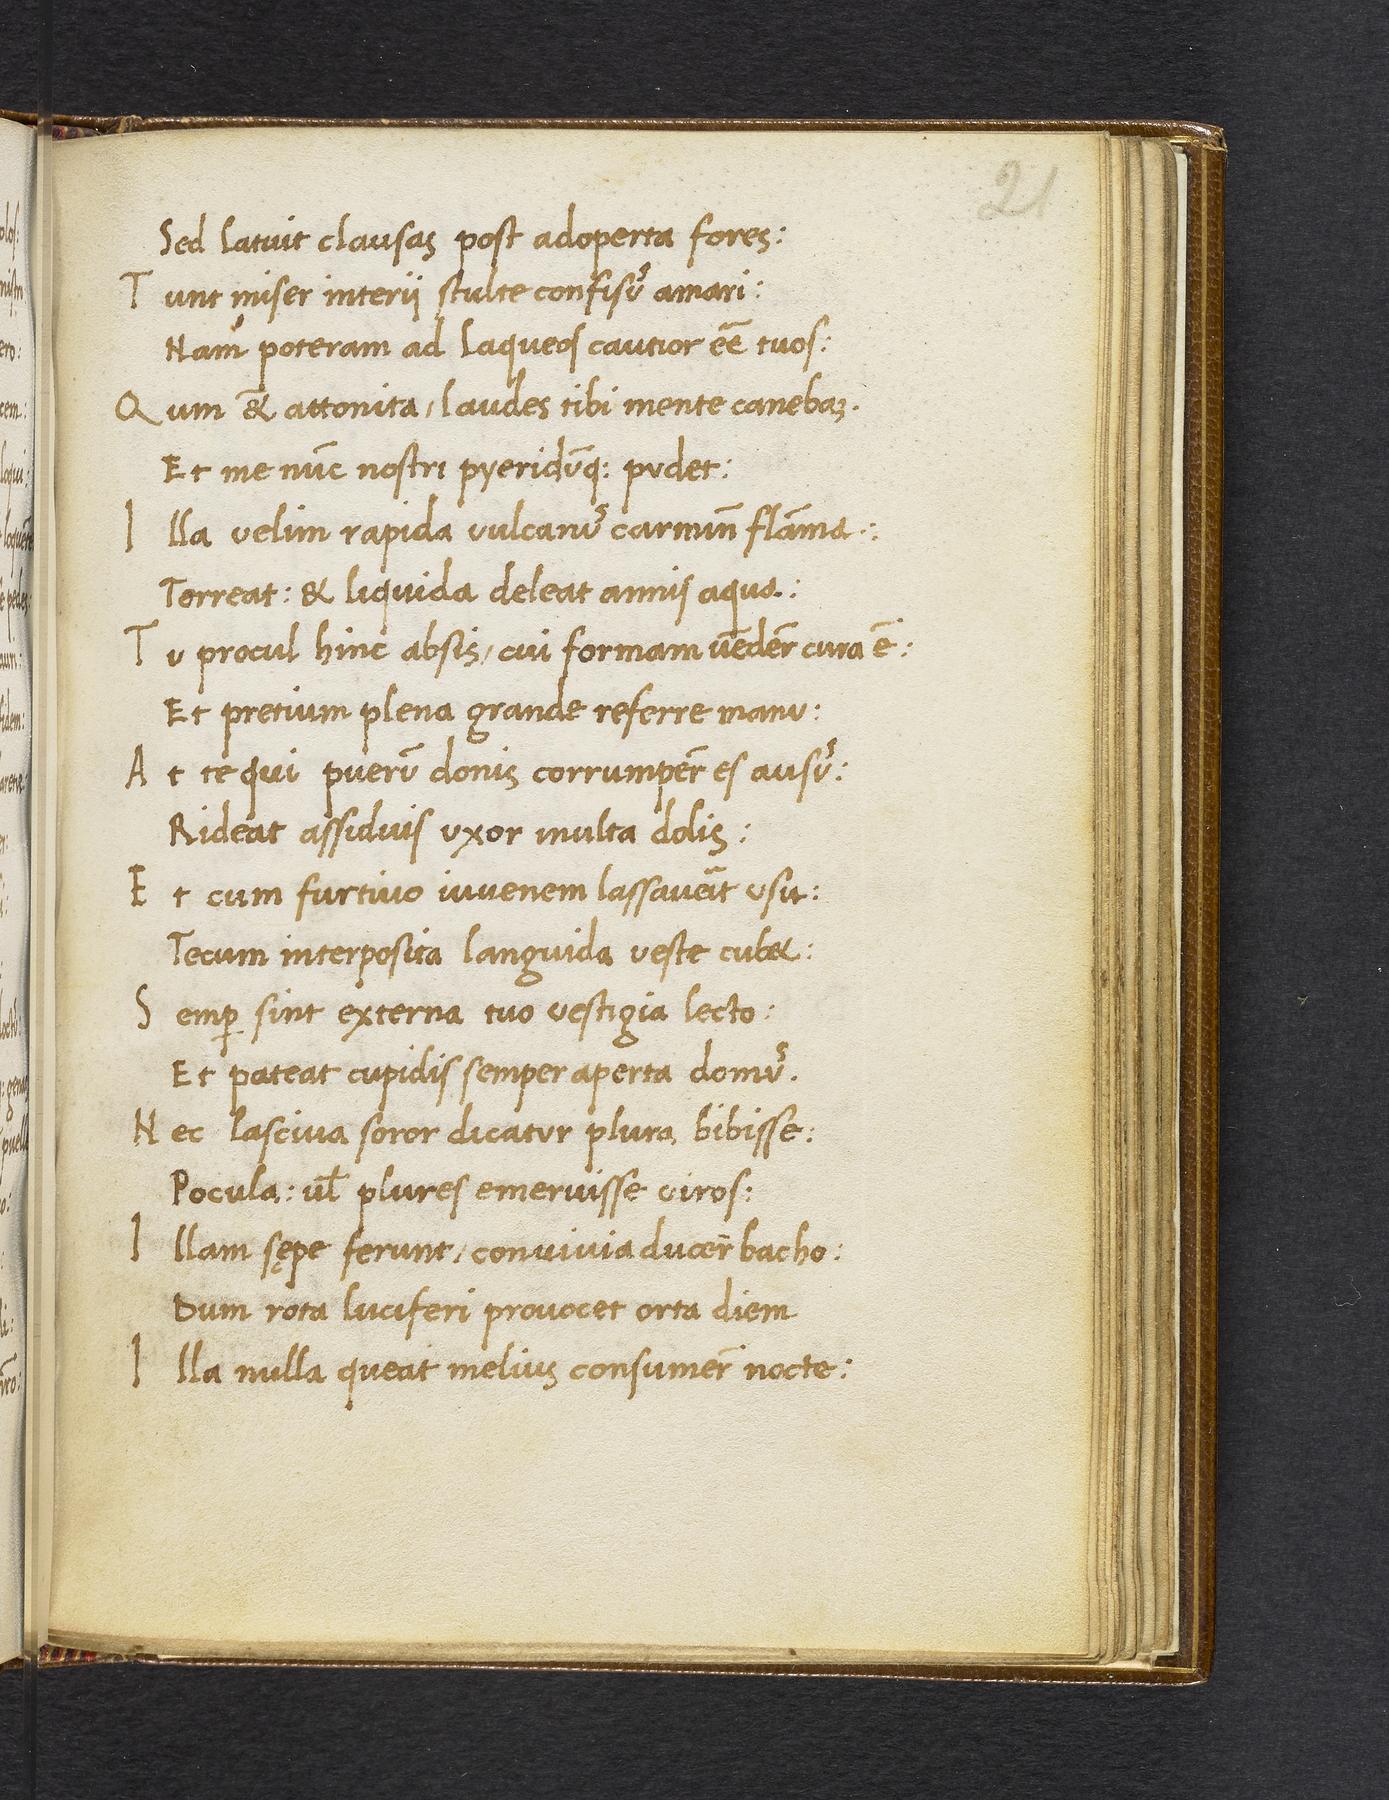 21
Sed latuit clausas post adoperta fores:
Tunt miser interii stulte confisũs amari:
Nam poteram ad laqueos cautior eẽ tuos:
Qum & attonita, laudes tibi mente canebaz.
Et me nũc nostri pyeridũq: pudet:
Illa velim rapida vulcanũs carmiñ flãma:
Torreat: & liquida deleat amnis aqua:
Tu procul hinc absis, cui formam uẽder̃ cura ẽ:
Et pretium plena grande referre manu:
At te qui puerũ donis corrumper̃ es ausũs:
Rideat assiduis uxor multa dolis:
Et cum furtivo iuvenem lassaveãt usu:
Tecum interposita languida veste cub&:
Semꝑ sint externa tuo vestigia lecto:
Et pateat cupidis semper aperta domũs.
Nec lasciva soror dicatur plura bibisse:
Pocula: ul̃ plures emeruisse viros:
Illam sępe ferunt, convivia ducer̃ bacho:
Dum rota luciferi provocet orta diem
Illa nulla queat melius consumer̃ nocte: